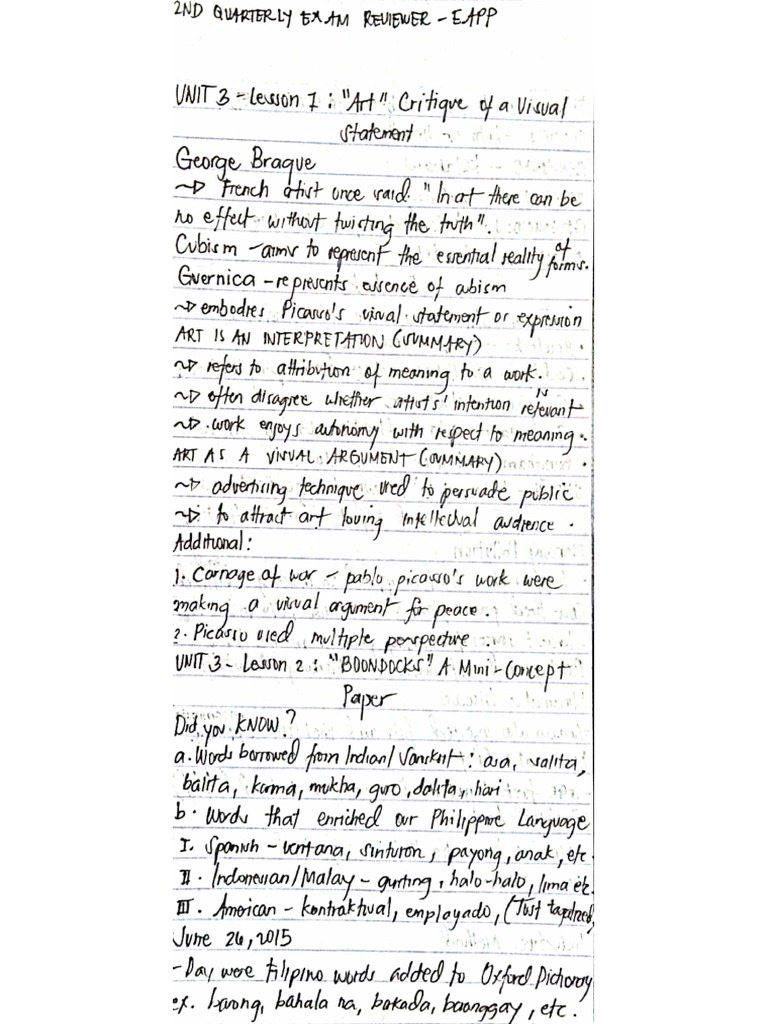 2ND QUARTERLY EXAM REVIEWER - EAPP
UNIT 3 - Lesson 1 : "Art" Critique of a Visual
Statement
George Braque
~> French artist once said "In art there can be
no effect without twisting the truth".
Cubism - aims to represent the essential reality of forms.
Guernica - represents essence of cubism
~> embodies Picasso's visual statement or expression
ART IS AN INTERPRETATION (SUMMARY)
~> refers to attribution of meaning to a work.
~> often disagree whether artists' intention is relevant
~> work enjoys autonomy with respect to meaning.
ART AS A VISUAL ARGUMENT (SUMMARY)
~> advertising technique used to persuade public
~> to attract art loving intellectual audience.
Additional:
1. Carnage of war - pablo picasso's work were
making a visual argument for peace.
2. Picasso used multiple perspective.
UNIT 3 - Lesson 2 : "BOONDOCKS" A Mini-Concept
Paper
Did you KNOW?
a. Words borrowed from Indian/Sanskrit : asa, salita,
balita, karma, mukha, guro, dalita, hari
b. Words that enriched our Philippine Language
I. Spanish - ventana, sinturon, payong, anak, etc.
II. Indonesian/Malay - gunting, halo-halo, lima etc.
III. American - kontraktwal, employado, (Just
June 26, 2015
- Day were Filipino words added to Oxford
ex. barong, bahala na, barkada, baranggay, etc.